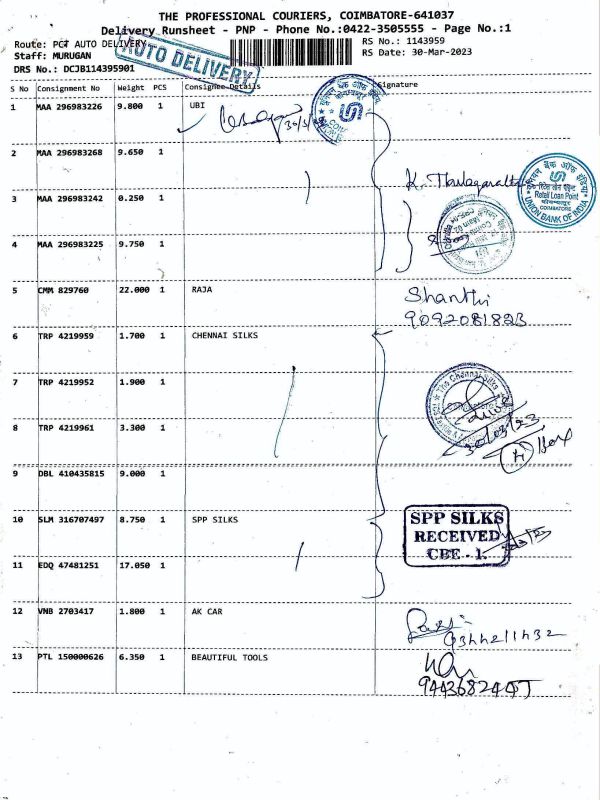 THE PROFESSIONAL COURIERS, COIMBATORE-641037
Delivery Runsheet - PNP - Phone No.:0422-3505555 - Page No.:1
Route: PCT AUTO DELIVERY
RS No.: 1143959
Staff: MURUGAN
RS Date: 30-Mar-2023
DRS No.: DCJB114395901
AUTO DELIVERY
S No Consignment No Weight PCS Consignee Details Signature
1 MAA 296983226 9.800 1 UBI
2 MAA 296983268 9.650 1
3 MAA 296983242 0.250 1
Retail Loan Point
COIMBATORE
UNION BANK OF INDIA
4 MAA 296983225 9.750 1
5 CMM 829760 22.000 1 RAJA Shanthi
9092081823
6 TRP 4219959 1.700 1 CHENNAI SILKS
7 TRP 4219952 1.900 1
The Chennai Silks
8 TRP 4219961 3.300 1
30/03/23
9 DBL 410435815 9.000 1
10 SLM 316707497 8.750 1 SPP SILKS
SPP SILKS
RECEIVED
CBE - 1.
11 EDQ 47481251 17.050 1
12 VNB 2703417 1.800 1 AK CAR
13 PTL 150000626 6.350 1 BEAUTIFUL TOOLS